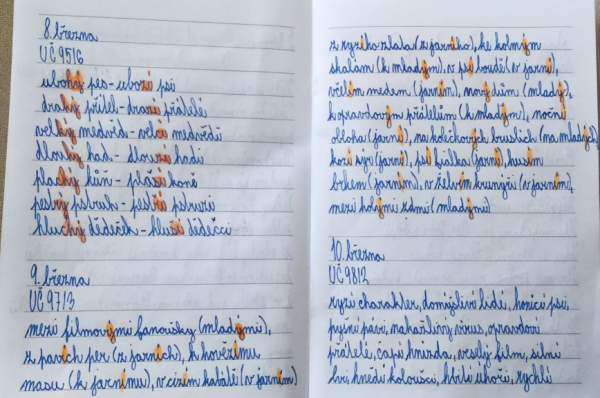 8. března
UČ 95/6
ubohý pes - ubozí psi
drahý přítel - drazí přátelé
velký medvěd - velcí medvědi
dlouhý had - dlouzí hadi
plachý kůň - plaší koně
pestrý pstruh - pestří pstruzi
hluchý dědeček - hluší dědečci
9. března
UČ 97/3
mezi filmovými fanoušky (mladými),
z pavích per (z jarních), k hovězímu
masu (k jarnímu), v cizím kabátě (v jarním)
z ryzího zlata (z jarního), ke kolmým
skalám (k mladým), v psí boudě (v jarní),
včelím medem (jarním), nový dům (mladý),
k opravdovým přátelům (k mladým), noční
obloha (jarní), na kolečkových bruslích (na mladých),
kozí sýr (jarní), psí fialka (jarní), husím
brkem (jarním), v želvím krunýři (v jarním),
mezi holými zdmi (mladými)
10. března
UČ 98/2
ryzí charakter, domýšliví lidé, honící psi,
pyšní pávi, nakažlivý virus, opravdoví
přátelé, čapí hnízda, veselý film, silní
lvi, hnědí koloušci, hbití úhoři, rychlí